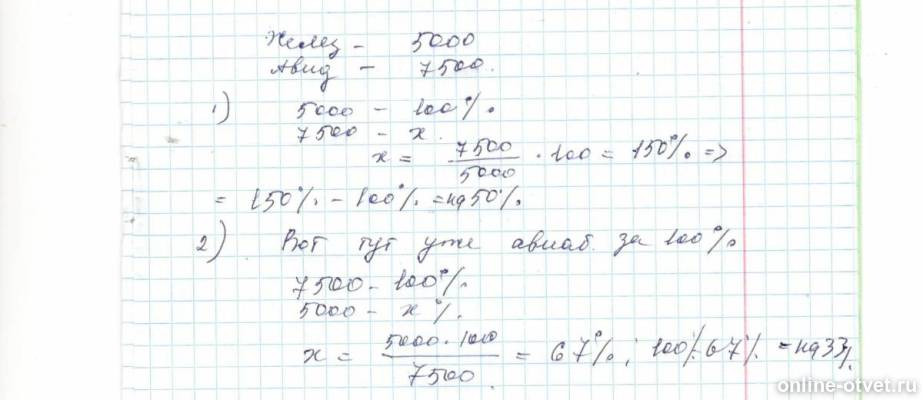 Желез - 5000
Авид - 7500.
1) 5000 - 100%.
7500 - x.
x = 7500/5000 · 100 = 150% =>
= 150% - 100% = на 50%.
2) Вот тут уже авиаб. за 100%
7500 - 100%.
5000 - x%.
x = 5000 · 100/7500. = 67%; 100% 67% = на 33%.
online-otvet.ru